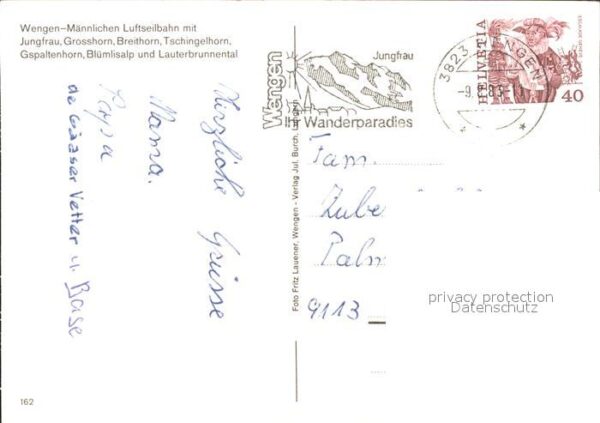 Wengen–Männlichen Luftseilbahn mit
Jungfrau, Grosshorn, Breithorn, Tschingelhorn,
Gspaltenhorn, Blümlisalp und Lauterbrunnental
Herzliche Grüsse
Mama.
Papa
Vetter u. Base
Foto Fritz Lauener, Wengen - Verlag Jul. Burch, Wengen
Wengen
Jungfrau
Ihr Wanderparadies
3823 WENGEN
HELVETIA
40
Fam.
Palm
9113
privacy protection
Datenschutz
162